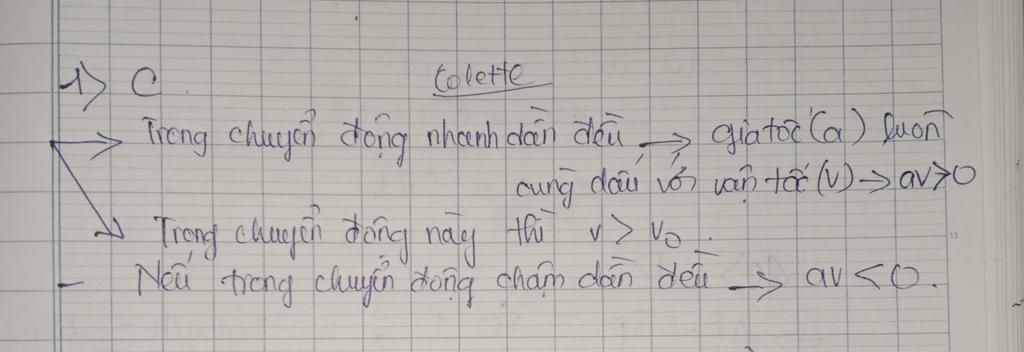 1) C. Colette
→ Trong chuyển động nhanh dần đều → gia tốc (a) luôn
cùng dấu với vận tốc (v) → av>0
→ Trong chuyển động này thì v > v₀.
- Nếu trong chuyển động chậm dần đều → av < 0.
15